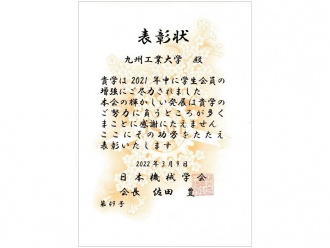 表彰状
九州工業大学 殿
貴学は2021年中に学生会員の
増強にご尽力されました
本会の輝かしい発展は貴学の
ご努力に負うところが多く
まことに感謝にたえません
ここにその功労をたたえ
表彰いたします
2022年3月9日
日本機械学会
会長 佐田 豊
第69号